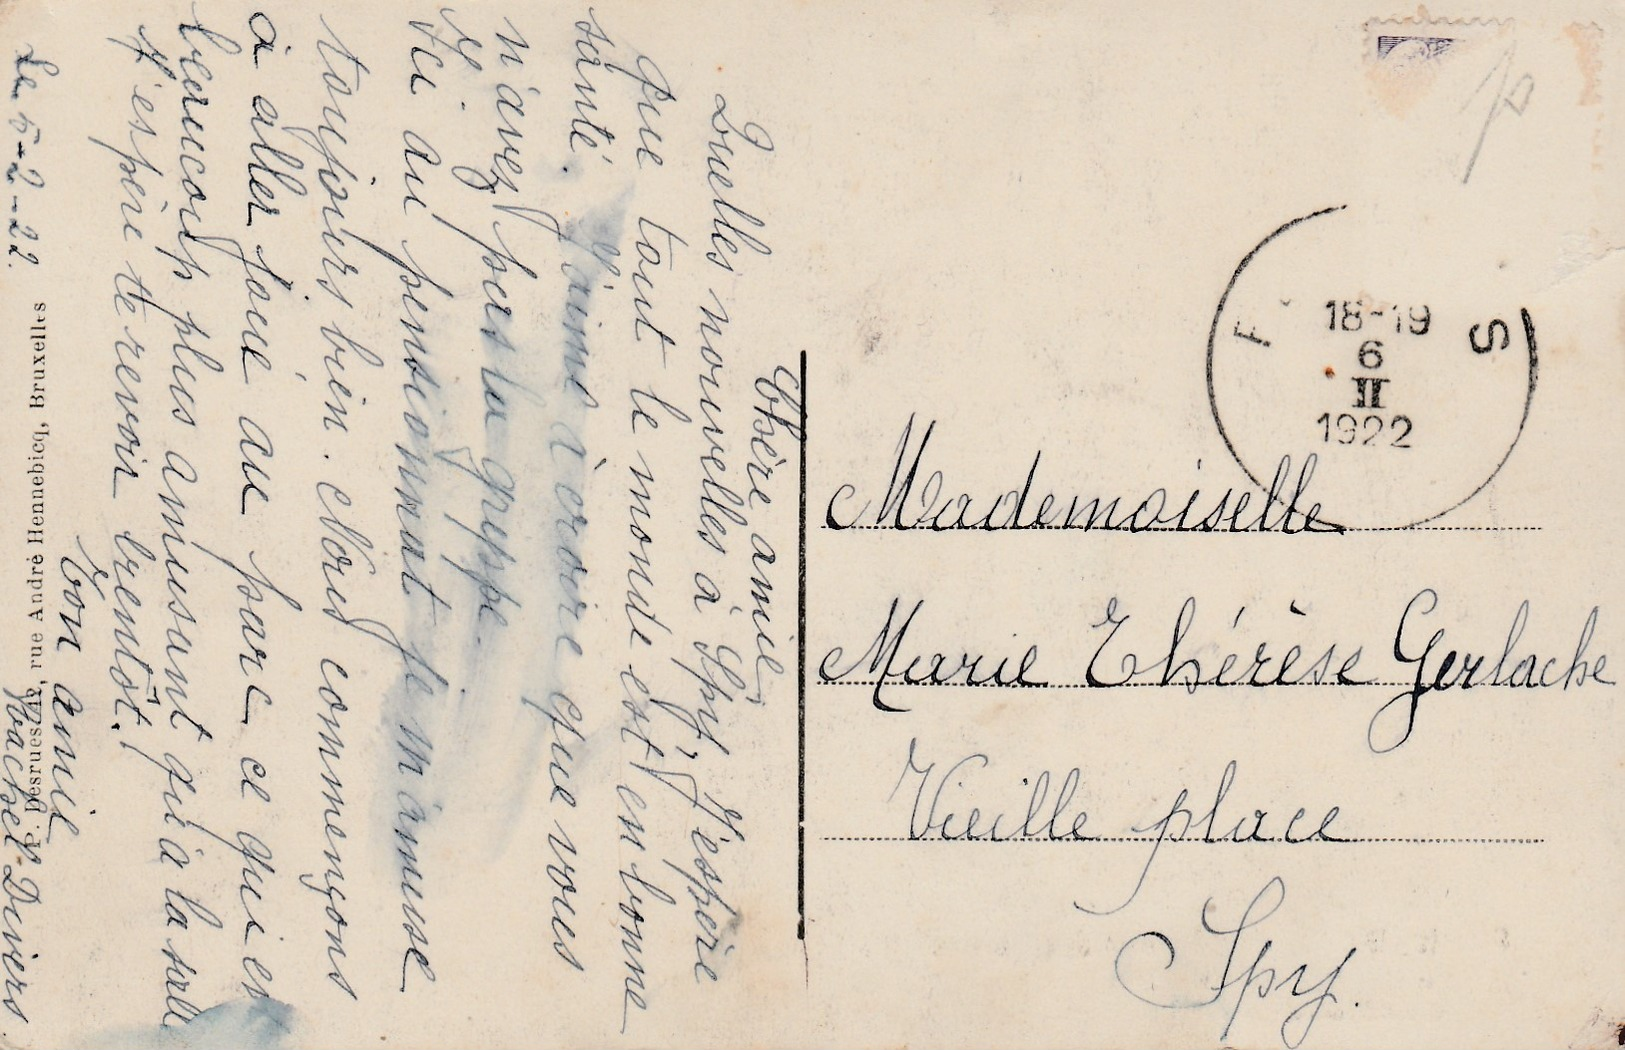 Le 5-2-22.
Chère amie,
Quelles nouvelles à Spy? J'espère
que tout le monde est en bonne
santé. J'aime à croire que vous
n'avez pas la grippe.
Ici au pensionnat je m'amuse
toujours bien. Nous commençons
à aller joué au parc ce qui est
beaucoup plus amusant qu'à la salle
J'espère te revoir bientôt.
Ton amie
Rachel
P. Desruesles, rue André Hennebicq, Bruxelles
18-19
6
II
1922
S
Mademoiselle
Marie Thérèse Gerlache
Vieille place
Spy.